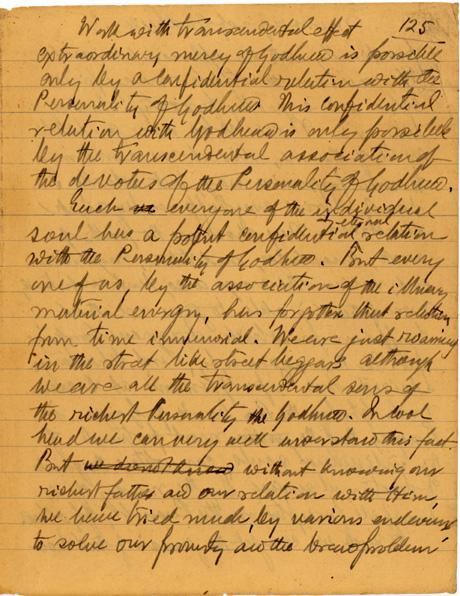 125
Work with transcendental effect
extraordinary mercy of Godhead is possible
only by a confidential relation with the
Personality of Godhead. This confidential
relation with Godhead is only possible
by the transcendental association of
the devotees of the Personality of Godhead.
Each everyone of the individual
eternal
soul has a potent confidential relation
with the Personality of Godhead. But every
one of us, by the association of the illusory
material energy, has forgotten that relation
from time immemorial. We are just roaming
in the street like street beggars although
we are all the transcendental sons of
the richest Personality the Godhead. In cool
head we can very well understand this fact.
But we do not know without knowing our
richest father and our relation with Him,
we have tried much, by various endeavour
to solve our poverty and the bread problem